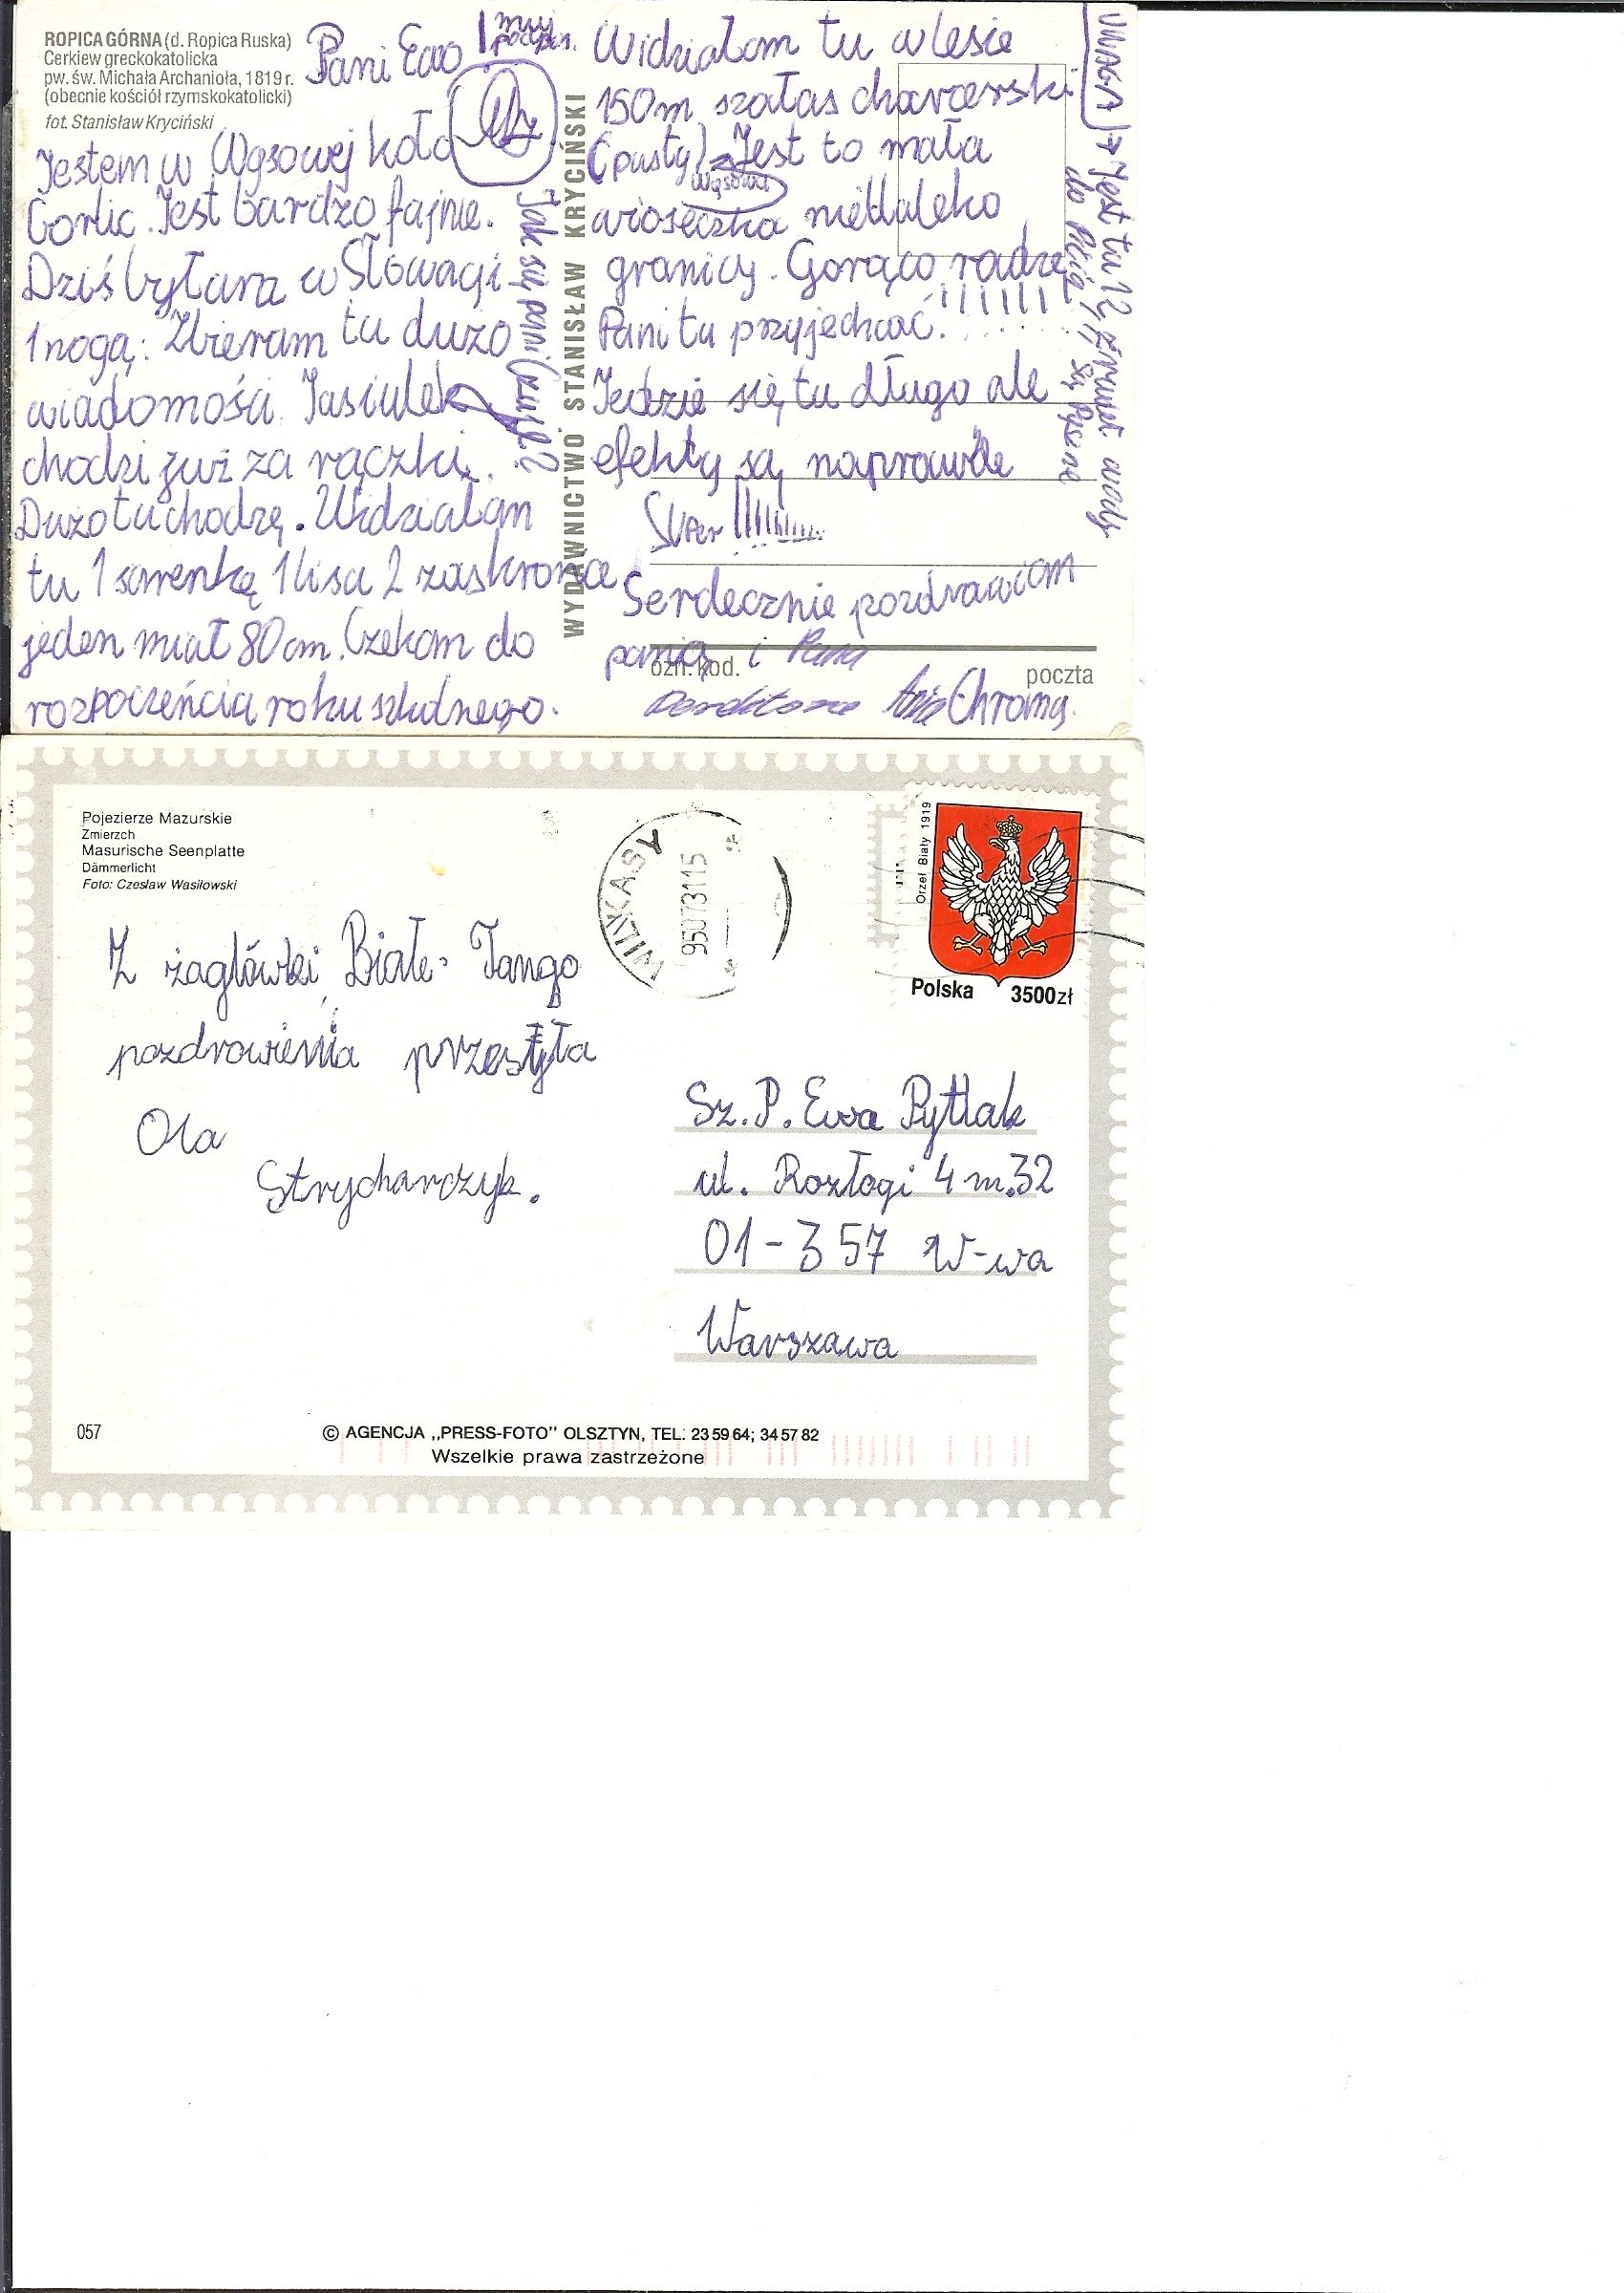 ROPICA GÓRNA (d. Ropica Ruska)
Cerkiew greckokatolicka
pw. św. Michała Archanioła, 1819 r.
(obecnie kościół rzymskokatolicki)
fot. Stanisław Kryciński
Pani Ewo
muj
podpis.
Jestem w Wysowej koło
Gorlic. Jest bardzo fajnie.
Dziś byłam w Słowacji
1 nogą: Zbieram tu dużo
wiadomości. Jasiulek
chodzi już za rączki.
Dużo tu chodzę. Widzialam
tu 1 sarenkę 1 lisa 2 zaskrońce
jeden miał 80 cm. Czekam do
rozpoczeńcia roku szkolnego.
Jak się pani czuje?
WYDAWNICTWO STANISŁAW KRYCIŃSKI
Widzialam tu w lesie
150m szałas charcerski
(pusty) Jest to mała
wioseczka niedaleko
granicy. Gorąco radzę
Pani tu przyjechać!!!!!!!
Jedzie się tu długo ale
efekty są naprawde
Super !!!!!!!!!
Serdecznie pozdrawiam
panią i Pana
Ania Chroma.
UWAGA → Jest tu 12 źrudeł wody
do Picia, są Pyszne
ozn. kod.
poczta
Pojezierze Mazurskie
Zmierzch
Masurische Seenplatte
Dämmerlicht
Foto: Czesław Wasiłowski
WILKASY
95073115
Orzeł Biały 1919
Polska 3500zł
Z żaglówki Białe-Tango
pozdrowienia przesyła
Ola
Strycharczyk.
Sz. P. Ewa Pytlak
ul. Rozłogi 4 m.32
01-357 W-wa
Warszawa
057
© AGENCJA ,,PRESS-FOTO'' OLSZTYN, TEL: 23 59 64; 34 57 82
Wszelkie prawa zastrzeżone